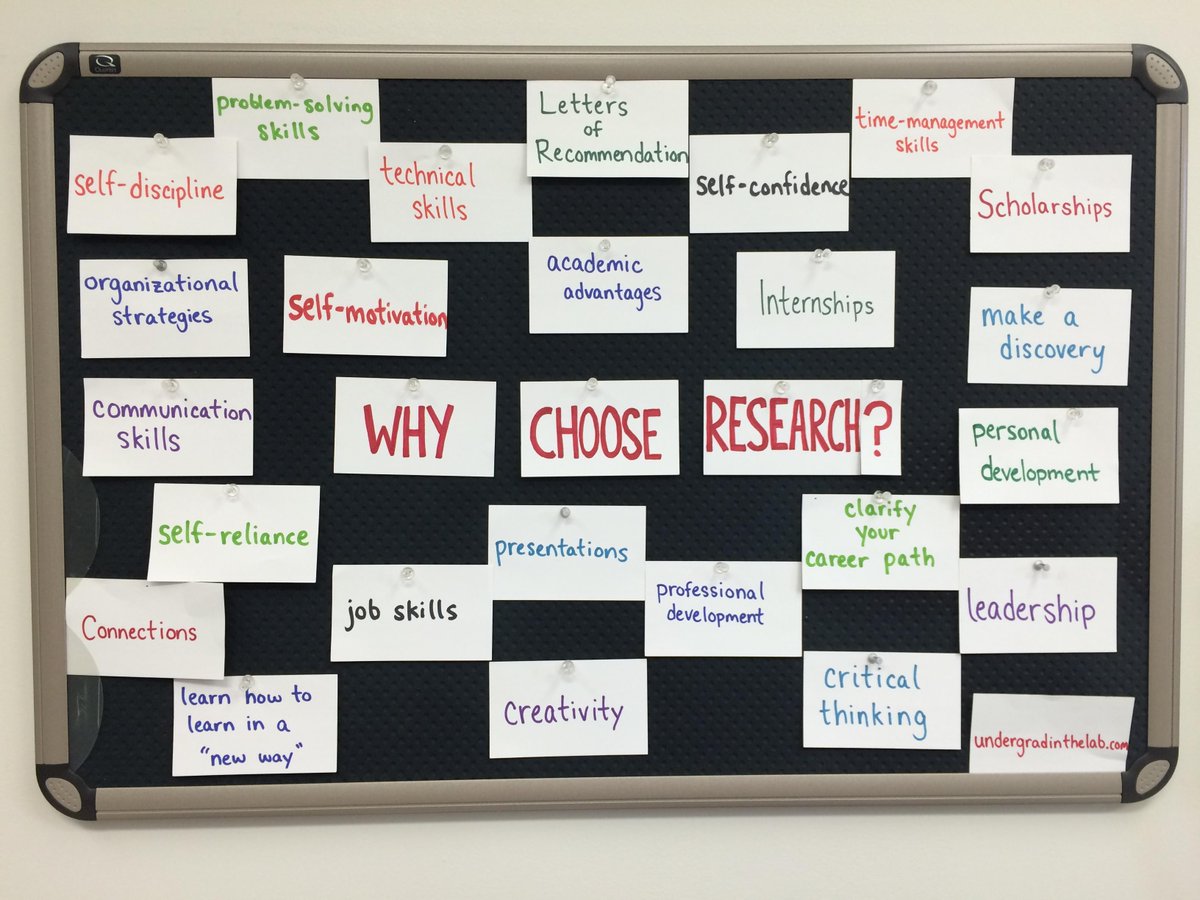 problem-solving
skills
Letters
of
Recommendation
time-management
skills
self-discipline
technical
skills
self-confidence
Scholarships
organizational
strategies
self-motivation
academic
advantages
Internships
make a
discovery
communication
skills
WHY CHOOSE RESEARCH?
personal
development
self-reliance
presentations
clarify
your
career path
Connections
job skills
professional
development
leadership
learn how to
learn in a
"new way"
creativity
critical
thinking
undergradinthelab.com